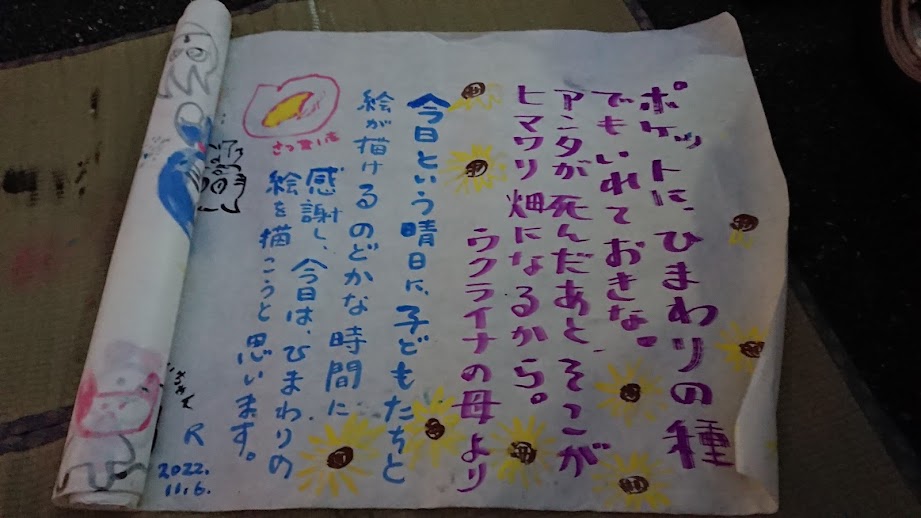 ポケットに、ひまわりの種
でもいれておきな。
アンタが死んだあと、そこが
ヒマワリ畑になるから。
ウクライナの母より
今日という晴日に、子どもたちと
絵が描けるのどかな時間に
感謝し、今日は、ひまわりの
絵を描こうと思います。
さつまいも
R
2022.
11.6.